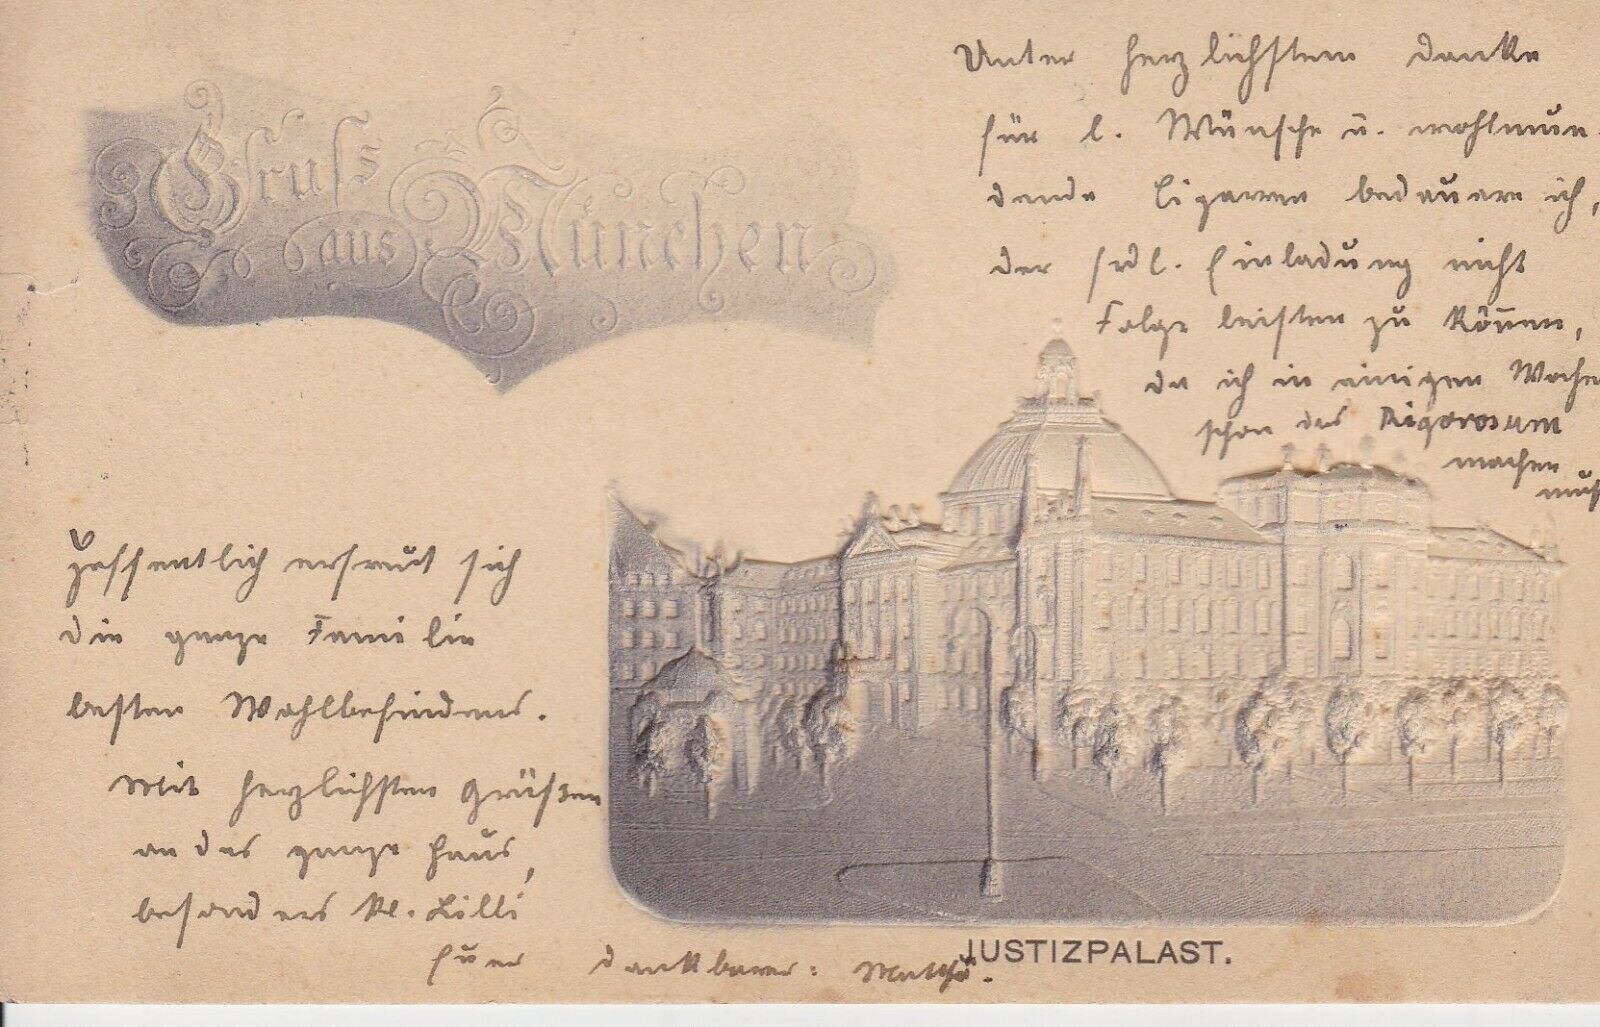 Gruss
aus München
Unter herzlichstem Danke
für l. Wünsche u. wohlmun-
dende Cigarren bedauere ich,
der frdl. Einladung nicht
Folge leisten zu können,
da ich in einigen Wochen
schon das Rigorosum
machen
muß
Hoffentlich erfreut sich
die ganze Familie
besten Wohlbefindens.
Mit herzlichsten Grüßen
an das ganze Haus,
besonders kl. Lilli
Euer dankbarer:
JUSTIZPALAST.